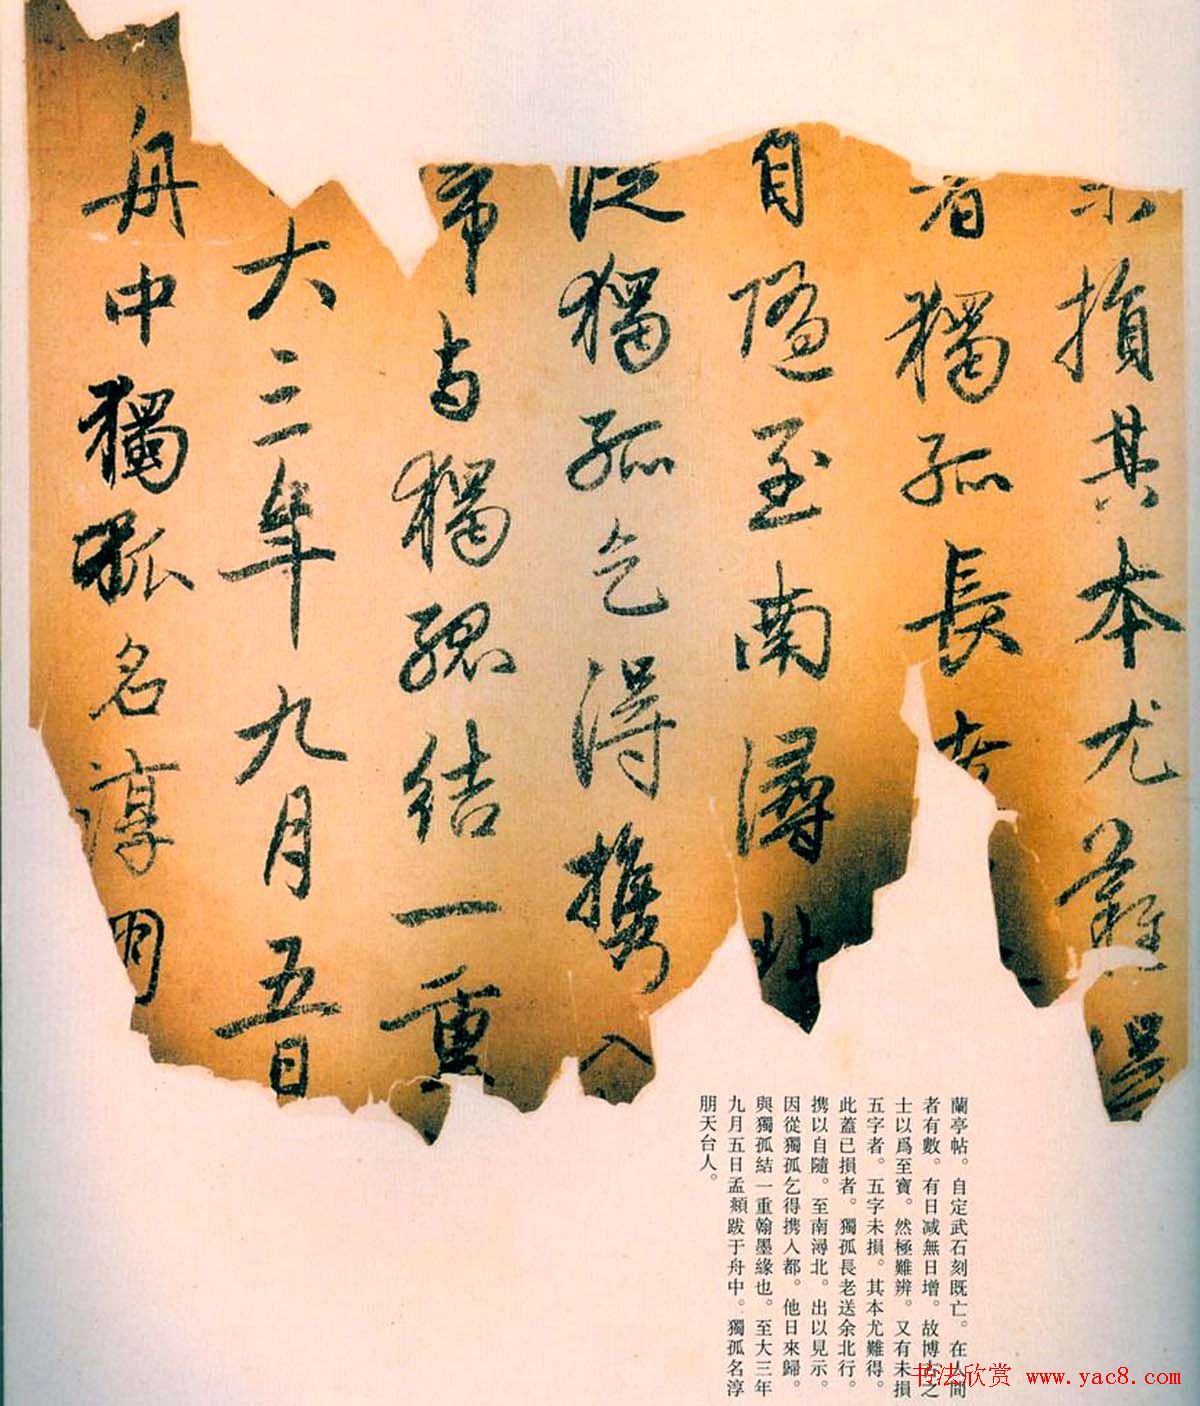 未損其本尤難得
者獨孤長老
自隨至南潯北
從獨孤乞得携入
帝与獨孤結一重
大三年九月五日
舟中獨孤名淳朋
蘭亭帖。自定武石刻既亡。在人間
者有數。有日減無日增。故博古之
士以爲至寶。然極難辨。又有未損
五字者。五字未損。其本尤難得。
此蓋已損者。獨孤長老送余北行。
携以自隨。至南潯北。出以見示。
因從獨孤乞得携入都。他日來歸。
與獨孤結一重翰墨緣也。至大三年
九月五日孟頫跋于舟中。獨孤名淳
朋天台人。
书法欣赏 www.yac8.com